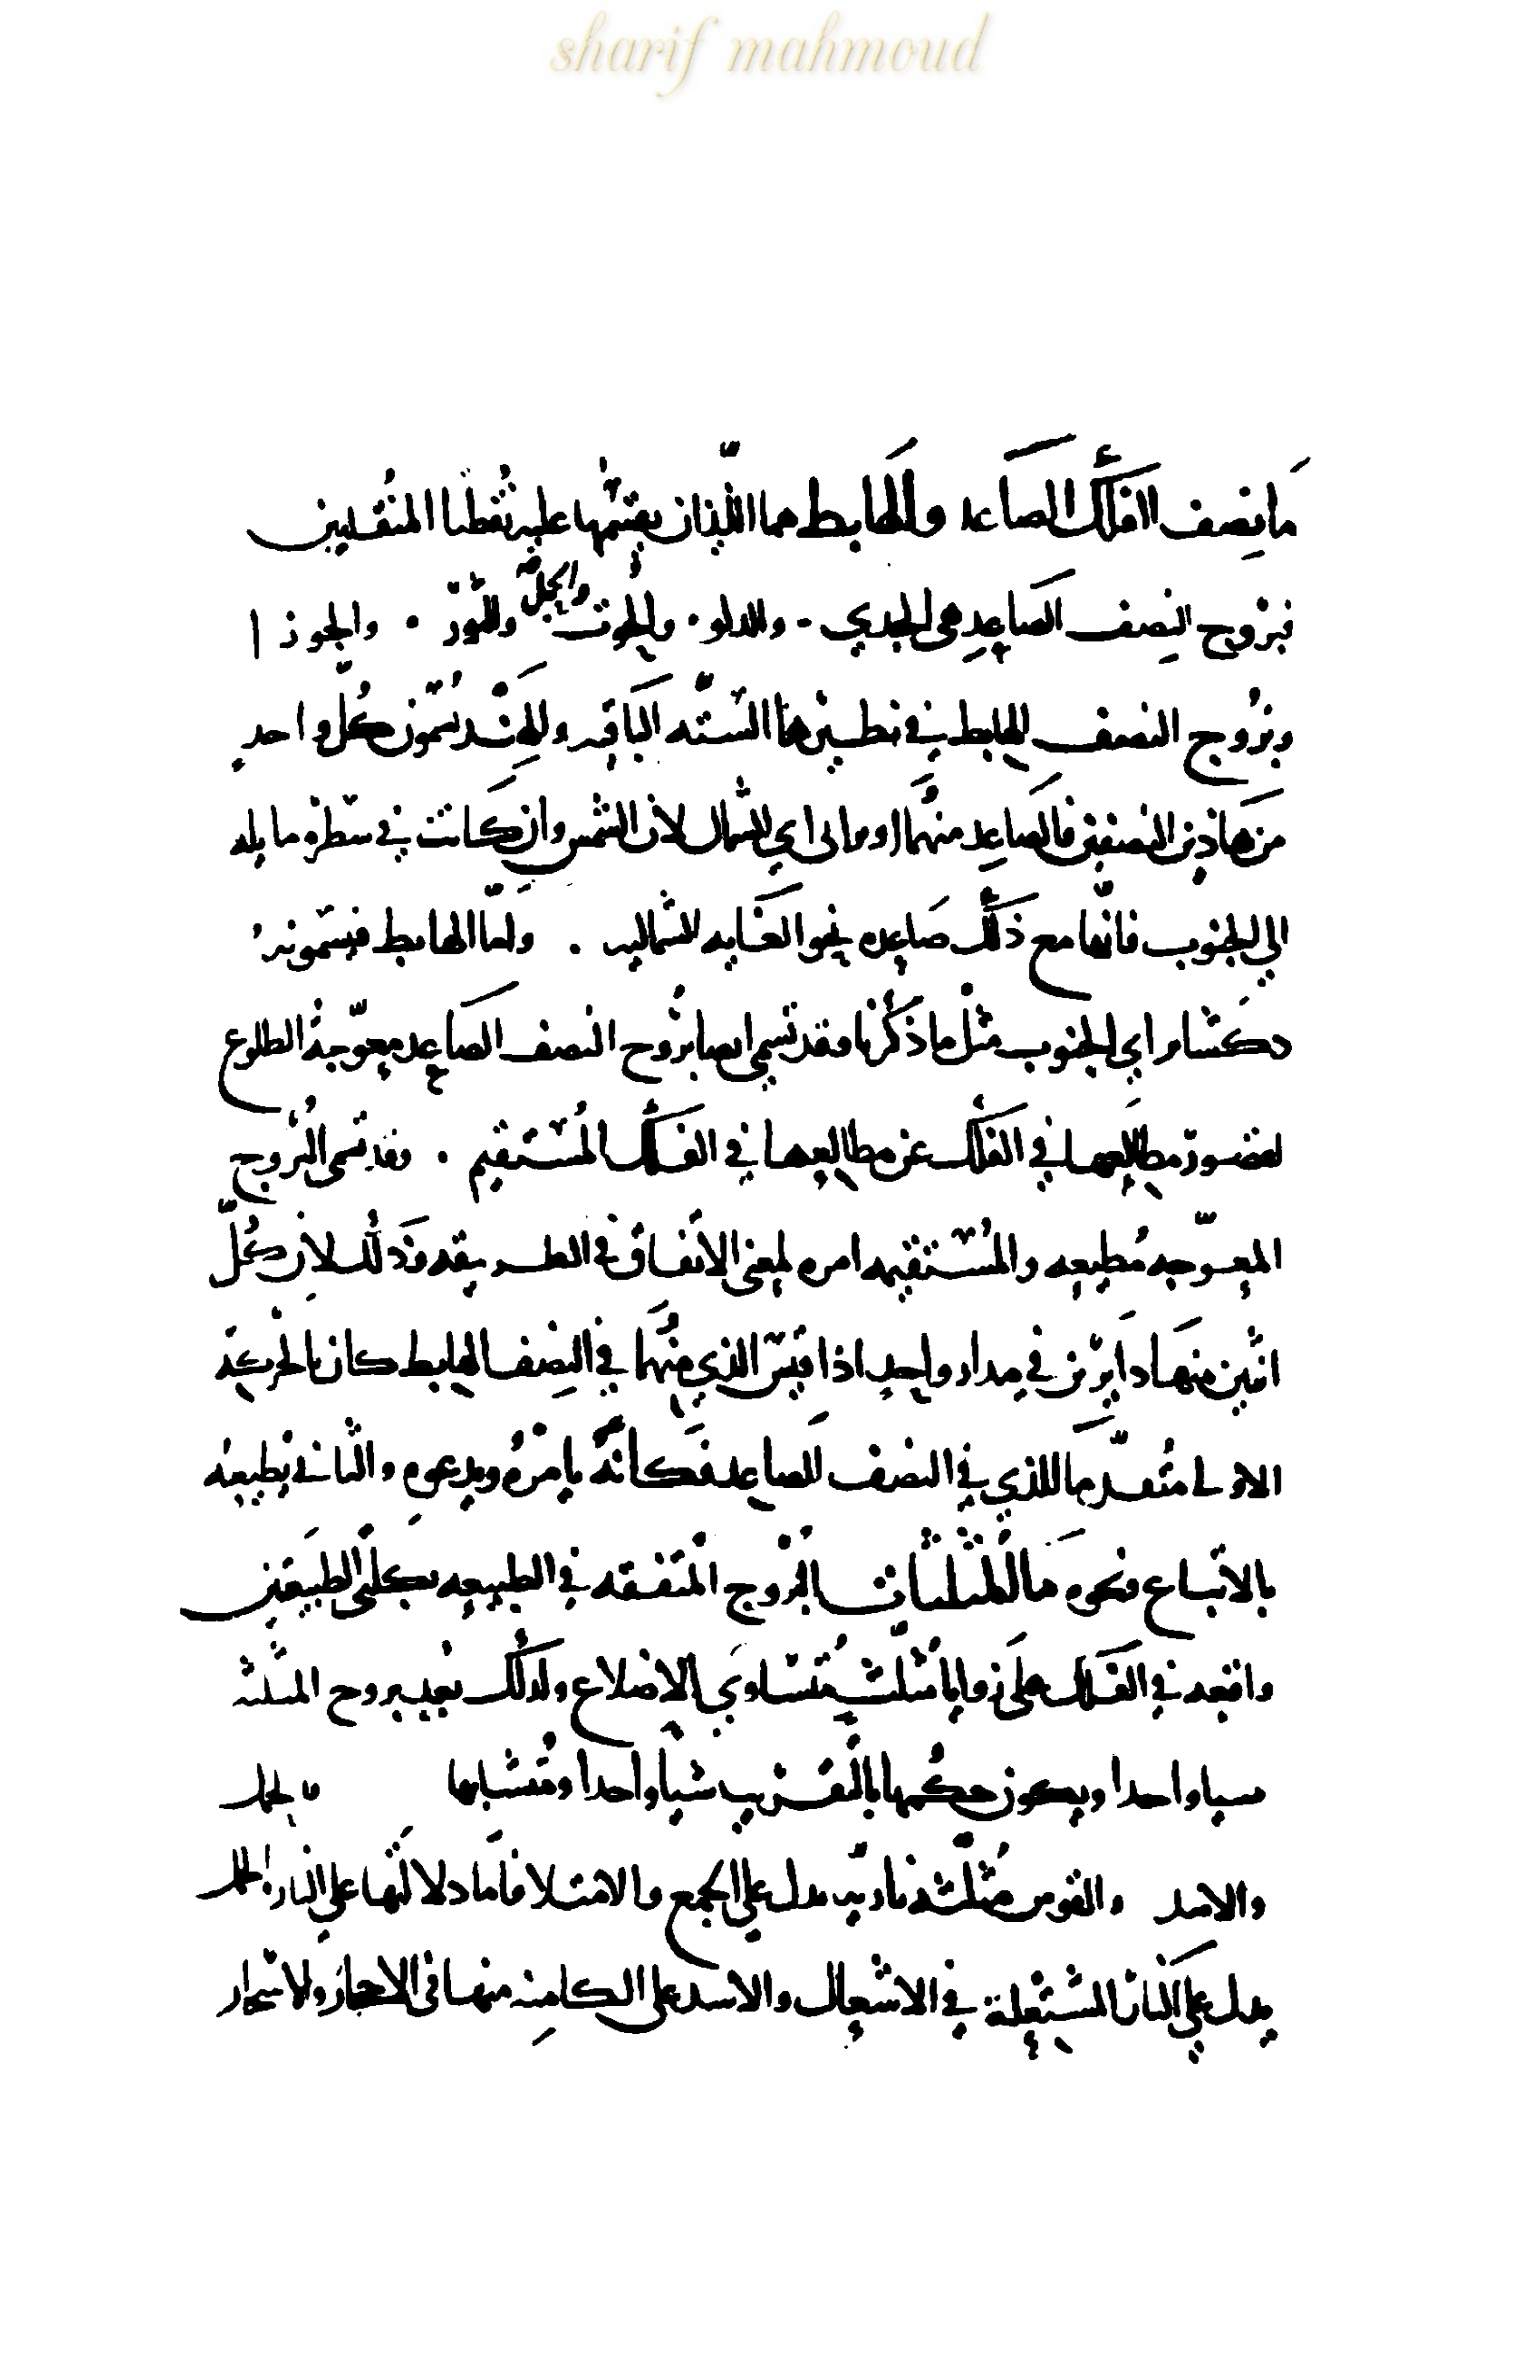 sharif mahmoud
ما نصف الافلاك الصاعد والهابط هما اللذان يقسمهما عليه نقطتا المنقلبين
فبروج النصف الصاعد هى الجدي . والدلو . والحوت والحمل والثور . والجوزا
وبروج النصف الهابط في نظيرها الستة الباقيه والهند يسمون كل واحد
من هاذين النصفين فالصاعد منهما اوتراي اي الشمال لان الشمس وان كانت في شطره مايله
الي الجنوب فانها مع ذلك صاعده نحو الغايه الشماليه . واما الهابط فيسمونه
دكشاير اي الجنوب مثل ما ذكرنا وقد تسمي ايضا بروج النصف الصاعد معوجة الطلوع
مطالعها في الفلك عن مطالعها في الفلك المستقيم . وقد تسمى البروج
المعوجه مطيعه والمستقيمه امره لمعنى الاتفاق في الطريقه وذلك لان كل
اثنين منها دايرين في مدار واحد اذا قيس الذي منهما في النصف الهابط كان بالحركة
الاولى متقدما للذي في النصف الصاعد فكانه يامره ويدعوه والثاني يطيعه
بالاتباع ونحوه ما المثلثات البروج المتفقه في الطبيعه بكلتى الطبيعتين
واقعه في الفلك على زوايا مثلث متساوي الاضلاع ولذلك تعد بروج المثلثه
شيا واحدا ويكون حكمها بالتقريب شيأ واحدا ومتشابها فالحمل
والاسد والقوس مثلثه ناريه تدل علي الجمع والامتلا فاما دلالتها علي النار الحمل
يدل علي النار المشتعلة في الاشعال والاسد على الكامنه منها في الاحجار والاشجار